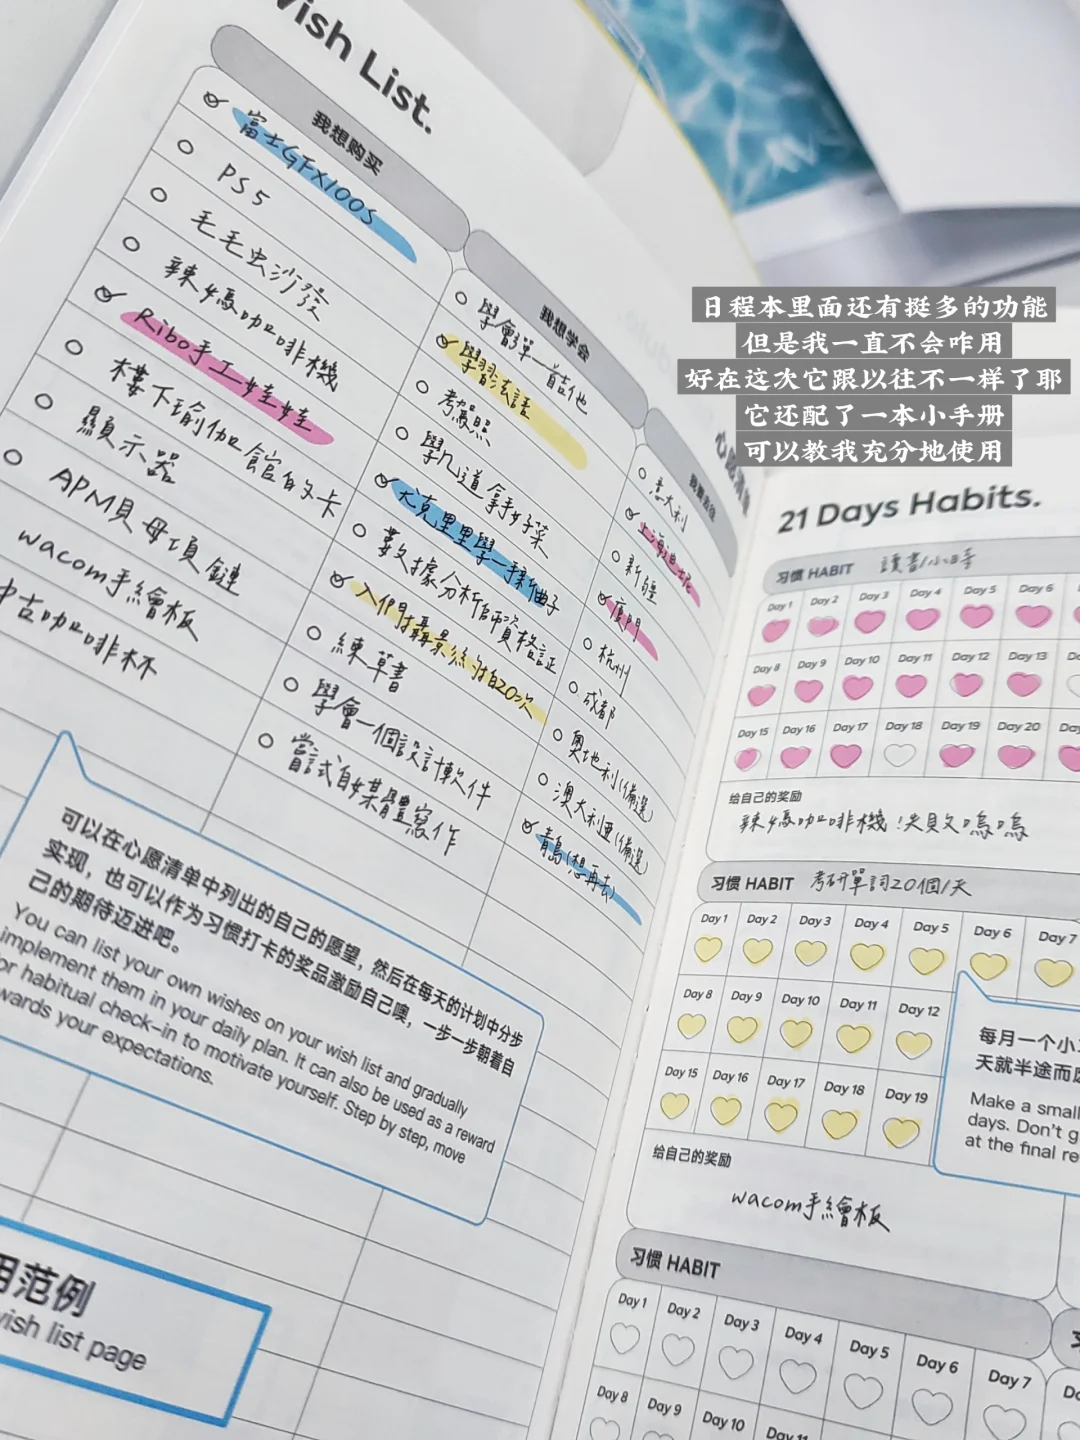 Wish List.
我想购买
富士GFX100S
PS5
毛毛虫沙發
辣媽咖啡機
Ribo手工娃娃
樓下瑜伽館的文卡
顯示器
APM貝母項鏈
wacom手繪板
中古咖啡杯
我想学会
學會彈一首吉他
學習法語
考駕照
學幾道拿手好菜
尤克里里學一手新曲子
數據分析師資格証
入們攝景
練草書
學會一個設計軟件
嘗試自媒體寫作
意大利
上海迪士尼
新疆
廈門
杭州
成都
奧地利(備選)
澳大利亞(備選)
青島(想再去)
可以在心愿清单中列出的自己的愿望，然后在每天的计划中分步
实现，也可以作为习惯打卡的奖品激励自己噢，一步一步朝着自
己的期待迈进吧。
You can list your own wishes on your wish list and gradually
implement them in your daily plan. It can also be used as a reward
for habitual check-in to motivate yourself. Step by step, move
wards your expectations.
用范例
wish list page
日程本里面还有挺多的功能
但是我一直不会咋用
好在这次它跟以往不一样了耶
它还配了一本小手册
可以教我充分地使用
心愿清单
21 Days Habits.
习惯 HABIT 讀書1小時
Day 1 Day 2 Day 3 Day 4 Day 5 Day 6
Day 8 Day 9 Day 10 Day 11 Day 12 Day 13
Day 15 Day 16 Day 17 Day 18 Day 19 Day 20
给自己的奖励
辣媽咖啡機!失貝文嗚嗚
习惯 HABIT 考研單詞20個/天
Day 1 Day 2 Day 3 Day 4 Day 5 Day 6 Day 7
Day 8 Day 9 Day 10 Day 11 Day 12
Day 15 Day 16 Day 17 Day 18 Day 19
每月一个小
天就半途而
Make a small
days. Don't g
at the final re
给自己的奖励
wacom手繪板
习惯 HABIT
Day 1 Day 2 Day 3 Day 4 Day 5 Day 6 Day 7
Day 8 Day 9 Day 10 Day 11